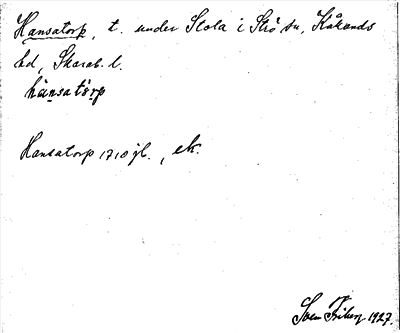 Hansatorp, t. under Stola i Strö sn, Kålands
hd, Skarab. l.
hansatörp
Hansatorp 1710 jb., ek.
Sven Friberg 1927.